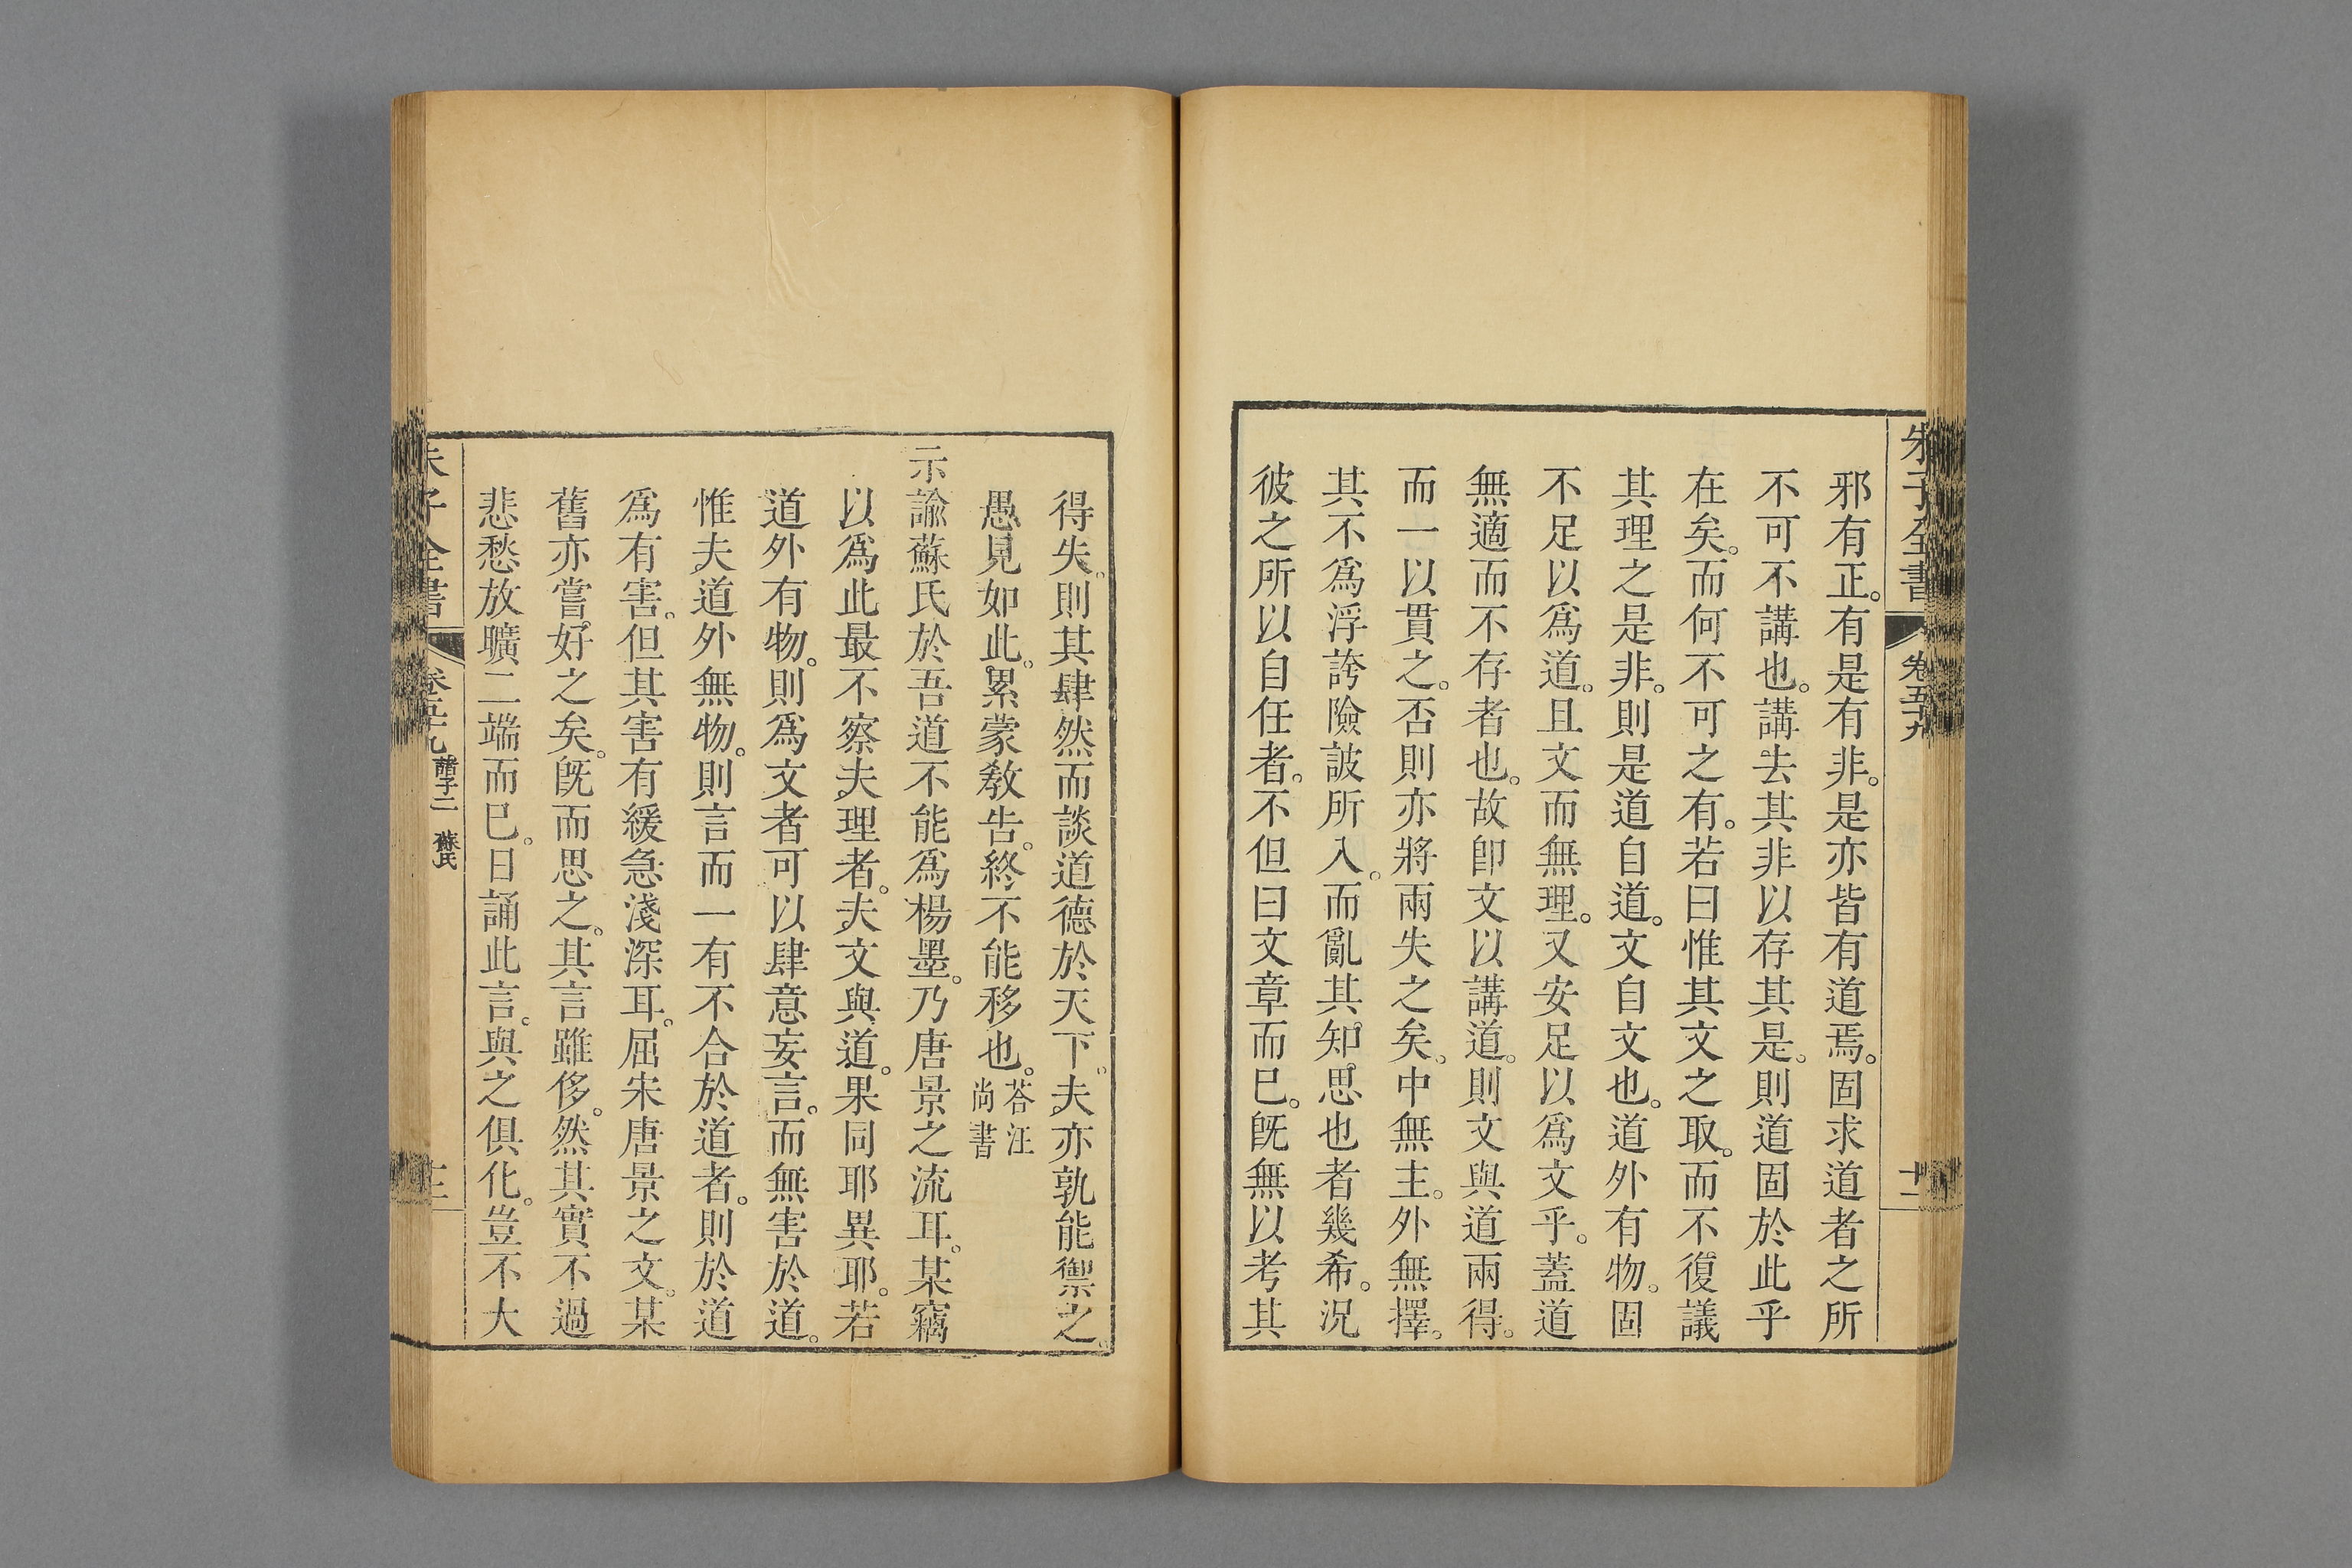 朱子全書 卷五十九 十二
邪有正。有是有非。是亦皆有道焉。固求道者之所
不可不講也。講去其非以存其是。則道固於此乎
在矣。而何不可之有。若曰惟其文之取。而不復議
其理之是非。則是道自道。文自文也。道外有物。固
不足以爲道。且文而無理。又安足以爲文乎。蓋道
無適而不存者也。故卽文以講道。則文與道兩得。
而一以貫之。否則亦將兩失之矣。中無主。外無擇。
其不爲浮誇險詖所入。而亂其知思也者幾希。況
彼之所以自任者。不但曰文章而已。旣無以考其
得失。則其肆然而談道德於天下。夫亦孰能禦之。
愚見如此。累蒙敎告。終不能移也。荅汪尚書
示諭蘇氏於吾道不能爲楊墨。乃唐景之流耳。某竊
以爲此最不察夫理者。夫文與道。果同耶異耶。若
道外有物。則爲文者可以肆意妄言。而無害於道。
惟夫道外無物。則言而一有不合於道者。則於道
爲有害。但其害有緩急淺深耳。屈宋唐景之文。某
舊亦嘗好之矣。旣而思之。其言雖侈。然其實不過
悲愁放曠二端而已。日誦此言。與之俱化。豈不大
朱子全書 卷五十九 諸子二 蘇氏 十三